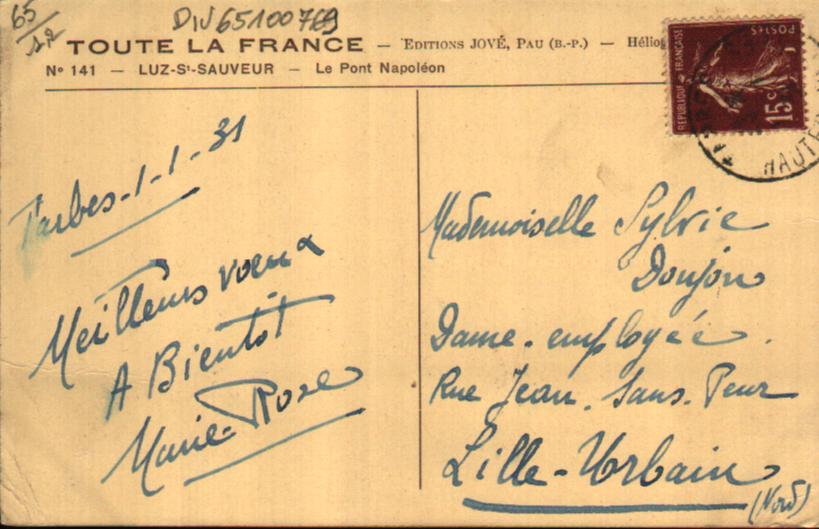 65
12
DIV65100769
TOUTE LA FRANCE — EDITIONS JOVÉ, PAU (B.-P.) — Héliog
N° 141 — LUZ-St-SAUVEUR — Le Pont Napoléon
REPUBLIQUE FRANÇAISE
POSTES
15c
HAUTE
Tarbes-1-1-31
Meilleurs vœux
A Bientôt
Marie-Rose
Mademoiselle Sylvie
Doujon
Dame-employée.
Rue Jean. Sans. Peur
Lille-Urbain
(Nord)